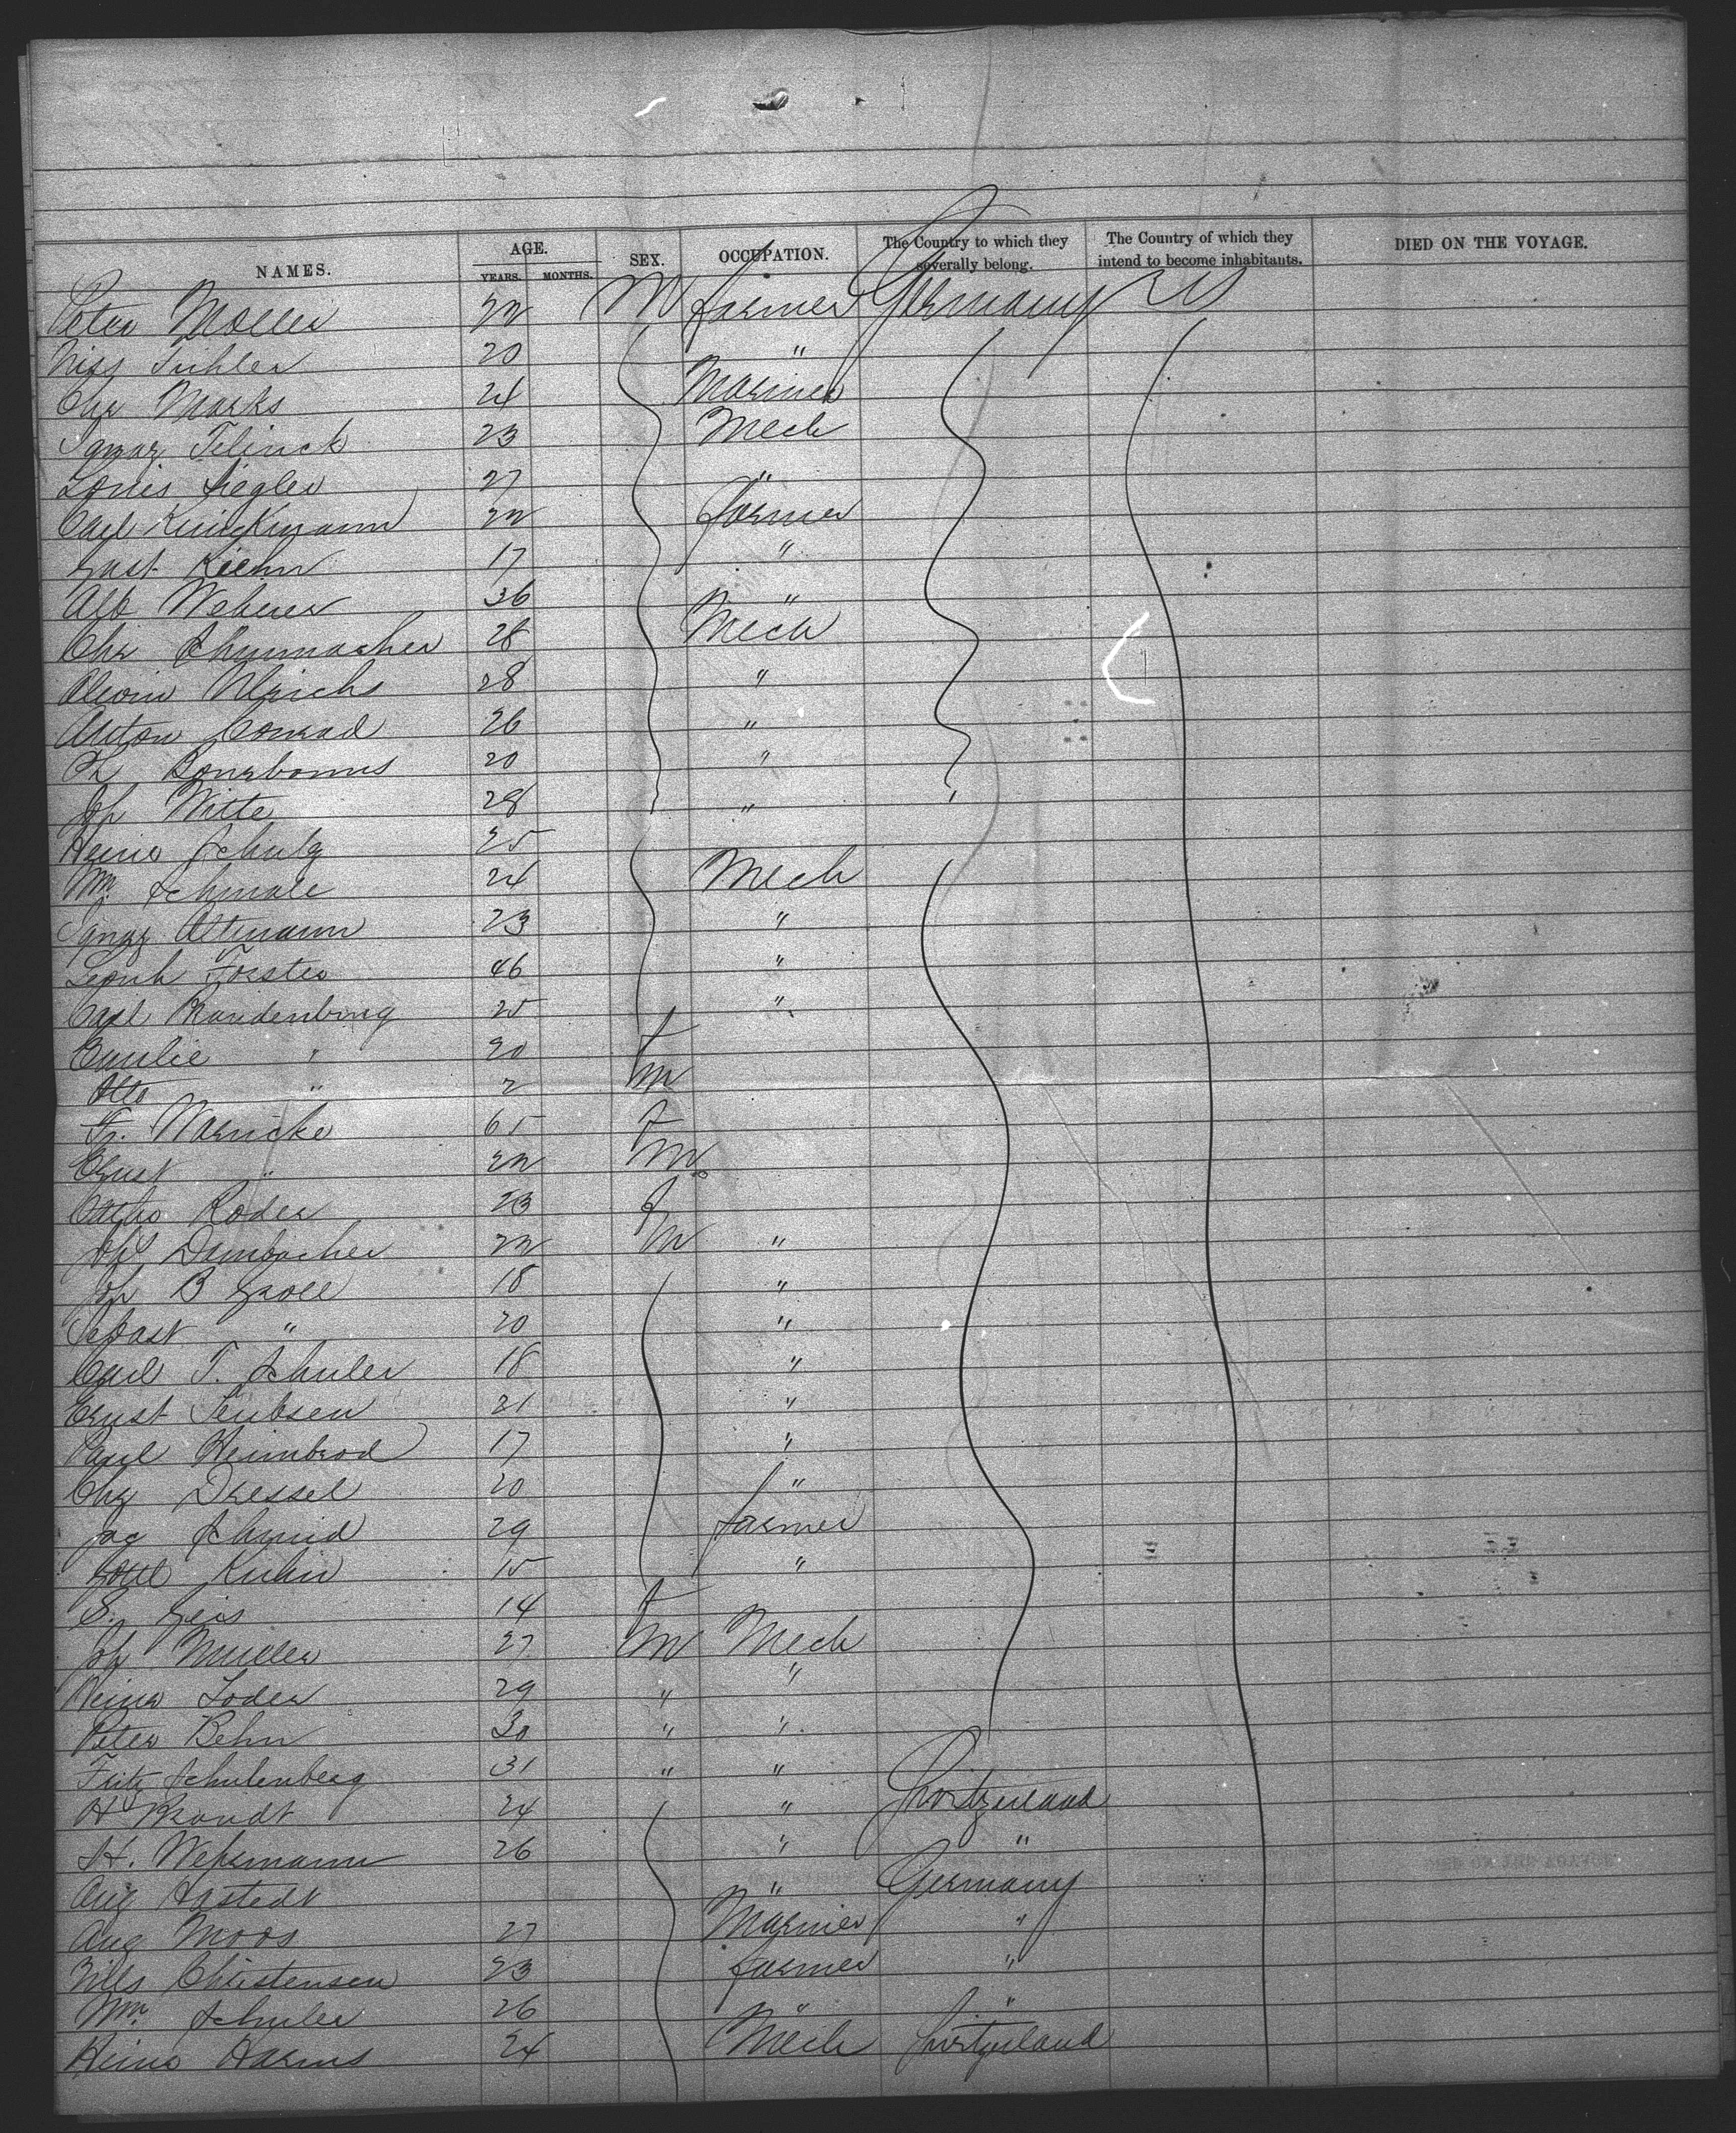 NAMES. AGE. YEARS. MONTHS. SEX. OCCUPATION. The Country to which they severally belong. The Country of which they intend to become inhabitants. DIED ON THE VOYAGE.
Peter Moller 22 M farmer Germany US
Niss 20 "
Chr Marks 24 Mariner
Ignaz 23 Mech
Louis Siegler 27 "
Carl 22 farmer
Gust Kiehn 17 "
Alb 36 "
Chr Schumacher 28 Mech
Alwin Ulrichs 28 "
Anton Conrad 26 "
20 "
Jos Witte 28 "
Heinr Schulz 25
Wm. Schmale 24 Mech
Ignaz Altmann 23 "
Leonh Forster 46 "
Carl Brandenburg 25 "
Emilie " 20 f
Otto " 2 m
Fr. Warnicke 65 f
Ernst " 22 m
Roder 23 f
Joh Dumbacher 22 m "
Jos B Groll 18 "
Sebast " 20 "
Carl T. Schuler 18 "
Ernst 21 "
Paul Heimbrod 17 "
Chr Dressel 20 "
Jac Schmid 29 farmer
Gottl Kuhn 15 "
S. Geis 14 f
Jos Muller 27 M Mech
Heinr Loder 29 " "
Peter Behn 30 " "
Fritz Schulenberg 31 " "
H Brandt 24 " Switzerland
H. 26 " "
Aug Hastedt " Germany
Aug Moos 27 Mariner "
Nills Christensen 23 farmer "
Wm. Schuler 26 " "
Heinr Harms 24 Mech Switzerland